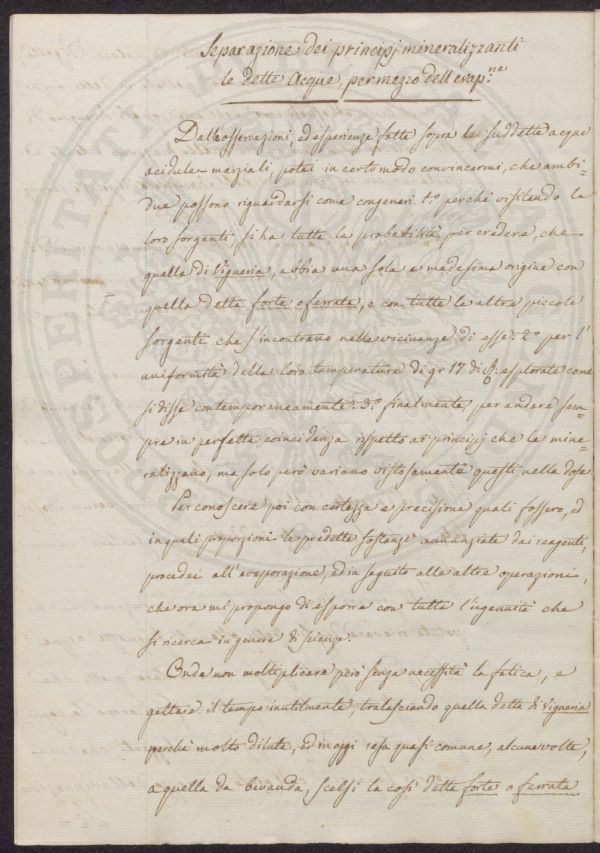 Separazione dei principj mineralizzanti
le dette Acque, per mezzo dell'evap:ne
Dalle osservazioni, ed esperienze fatte sopra le suddette acque
acidule-marziali, potei in certo modo convincermi, che ambi=
due possono riguardarsi come congeneri. 1.o perchè visitando le
loro sorgenti, si ha tutta la probabilità per credere, che
quella di Vigneria, abbia una sola e medesima origine con
quella detta forte o ferrata, e con tutte le altre piccole
sorgenti che s'incontrano nelle vicinanze di esse: 2.o per l'
uniformità della loro temperatura di gr 17 di R. esplorate come
si disse contemporaneamente: 3.o finalmente, per andare sem=
pre in perfetta coincidenza rispetto ai principj che le mine=
ralizzano, ma solo però variano vistosamente questi nella dose.
Per conoscere poi con certezza e precisione quali fossero, ed
in quali proporzioni le predette sostanze annunziate dai reagenti,
procedei all'evaporazione, ed in seguito alle altre operazioni,
che ora mi propongo di esporre con tutta l'ingenuità che
si ricerca in genere di scienze.
Onde non moltiplicare però senza necessità la fatica, e
gettare il tempo inutilmente, tralasciando quella detta di Vigneria
perchè molto diluta, ed in oggi resa quasi comune, alcune volte,
a quella da bevanda, scelsi la così detta forte o ferrata